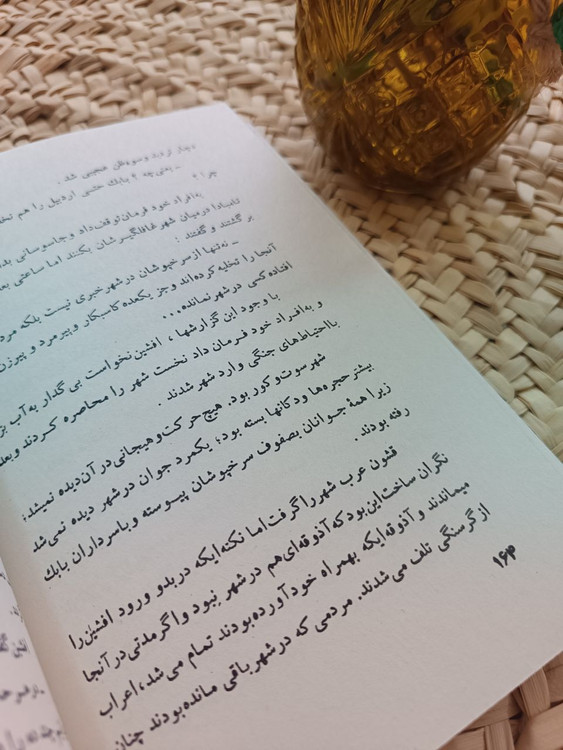 دچار تردید و سوءظن عجیبی شد.
ـ یعنی چه؟ بابك حتی اردبیل را هم
چرا؟
به‌افراد خود فرمان توقف داد و جاسوسانی
تامبادا درمیان شهر غافلگیرشان بکنند اما ساعتی بعد
برگشتند و گفتند:
ـ نه‌تنها از سرخپوشان در شهر خبری نیست بلکه
آنجا را تخلیه کرده‌اند و جز یکعده کاسبکار و پیرمرد و پیرزن
افتاده کسی در شهر نمانده...
با وجود این گزارشها، افشین نخواست بی گدار به آب
و به افراد خود فرمان داد نخست شهر را محاصره کردند و بعد
با احتیاط‌های جنگی وارد شهر شدند.
شهر سوت و کور بود. هیچ حرکت و هیجانی در آن دیده نمیشد؛
بیشتر حجره‌ها و دکانها بسته بود؛ یکمرد جوان در شهر دیده نمی‌شد
زیرا همهٔ جوانان بصفوف سرخپوشان پیوسته و با سرداران بابك
رفته بودند.
قشون عرب شهر را گرفت اما نکته‌ایکه در بدو ورود افشین را
نگران ساخت این بود که آذوقه‌ای هم در شهر نبود و اگر مدتی در آنجا
میماندند و آذوقه‌ایکه بهمراه خود آورده بودند تمام می‌شد، اعراب
از گرسنگی تلف می‌شدند. مردمی که در شهر باقی مانده بودند چنان
۱۶۴